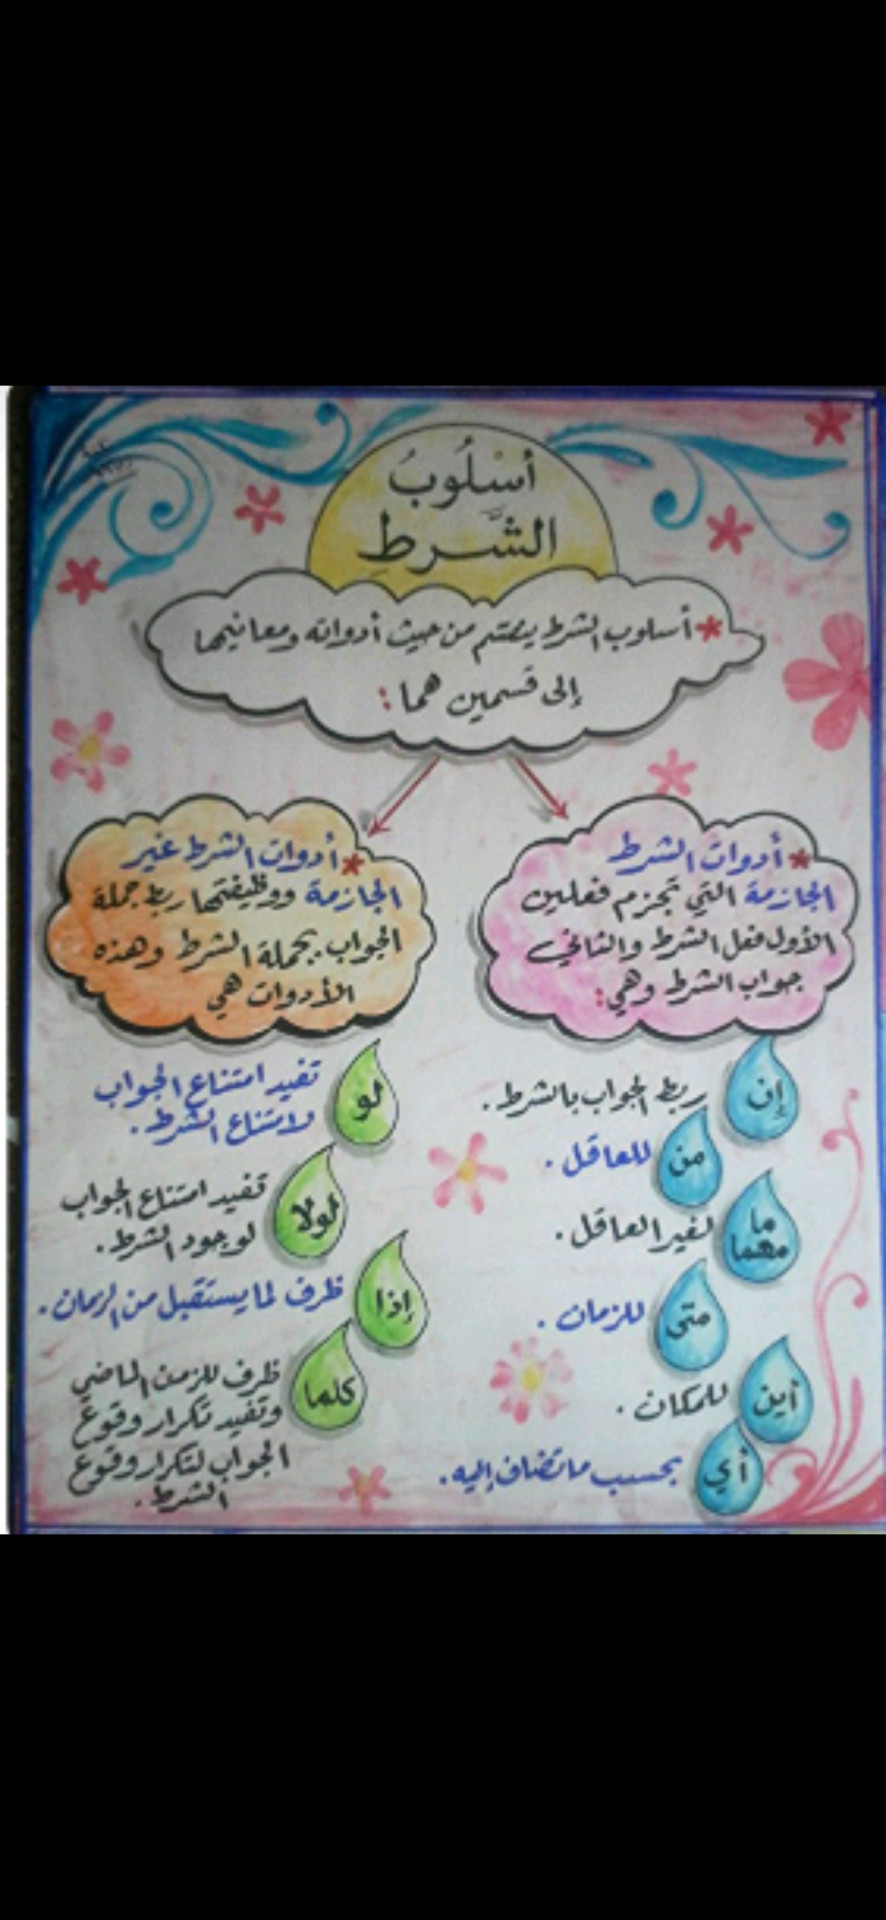 أسْلُوبُ
الشَّرطِ
*أسلوب الشرط ينقسم من حيث أدواته ومعانيها
إلى قسمين هما:
*أدوات الشرط
الجازمة التي تجزم فعلين
الأول فعل الشرط والثاني
جواب الشرط وهي:
إن ربط الجواب بالشرط.
من للعاقل.
ما
مهما لغير العاقل.
متى للزمان.
أين للمكان.
أي بحسب ما تضاف إليه.
*أدوات الشرط غير
الجازمة ووظيفتها ربط جملة
الجواب بجملة الشرط وهذه
الأدوات هي
لو تفيد امتناع الجواب
لامتناع الشرط.
لولا تفيد امتناع الجواب
لوجود الشرط.
إذا ظرف لما يستقبل من الزمان.
كلما ظرف للزمن الماضي
وتفيد تكرار وقوع
الجواب لتكرار وقوع
الشرط.